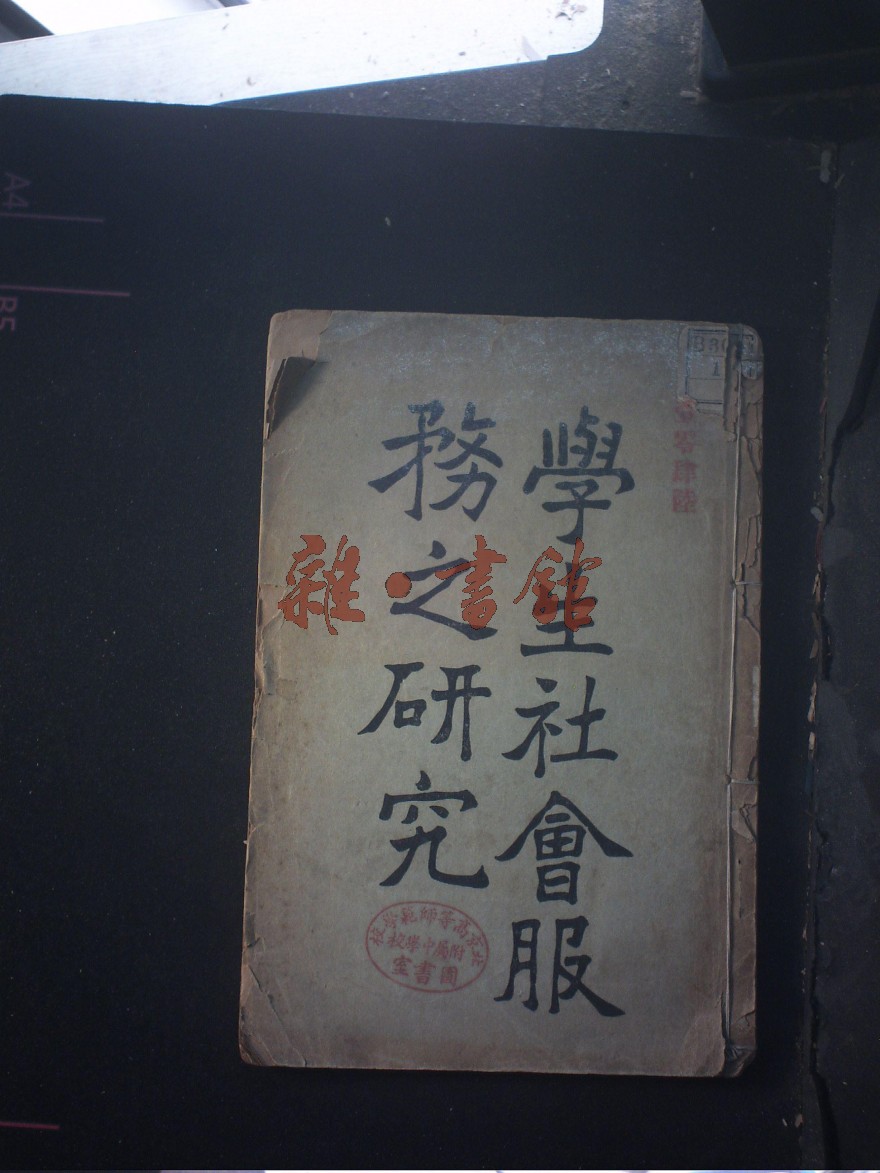 學生社會服
務之研究
零肆陸
北京高等師範學校
附屬中學校
圖書室
雜·書館
A4
B5